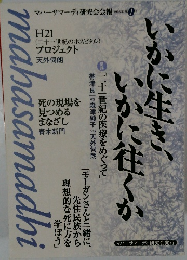 マハーサマーディ研究会会報
mahasamadhi
いかに生き、
いかに往くか
H21
プロジェクト
天外伺朗
死の現場を
見つめる
まなざし
青木新門
二十一世紀の医療をめぐって
天外伺朗
「キーガンさんと一緒に、
先住民族から
理想的な死に方を
学ぼう」